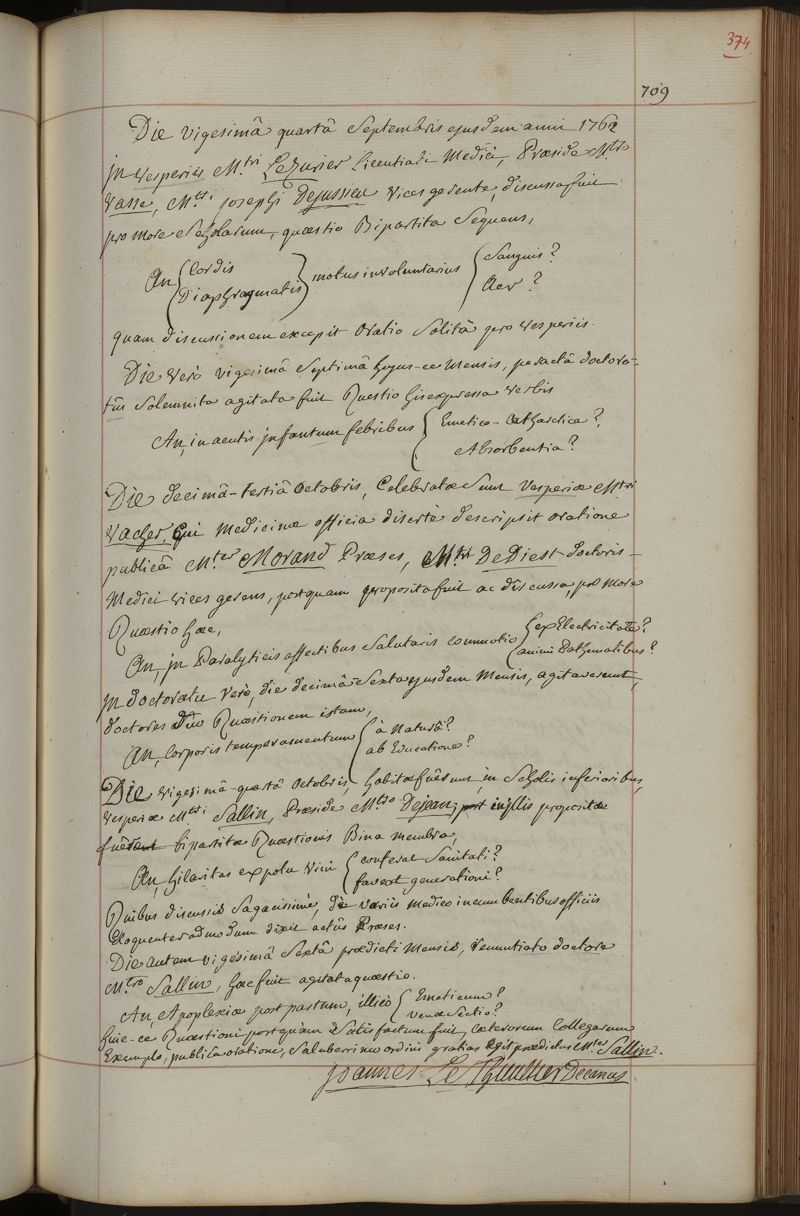 374
709
Die vigesimâ quartâ Septembris ejusdem anni 1762
in vesperiis M.tri LeZurier Licentiati Medici, Præside M.tro
Vasse, M.tri josephi Dejussieu vices gerente, discussa fuit
pro more Scholarum, quæstio Bipartita Sequens,
An { Cordis } motus involuntarius { Sanguis?
{ Diaphragmatis } { Aer?
quam discussionem excepit oratio Solita pro vesperiis.
Die vero vigesimâ Septimâ hujus-ce Mensis, peractâ doctora-
tûs Solemnita agitata fuit Quæstio his expressa verbis
An, in acutis infantum febribus { Emetico-Cathartica?
{ Absorbentia?
Die decimâ-tertiâ Octobris, Celebratæ Sunt vesperiæ M.tri
Vacher, Qui Medicinæ officia disertè descripsit oratione
publicâ M.ter Morand Præses, M.tri DeDiest doctoris-
Medici vices gerens, postquam proposita fuit ac discussa, pro more
Quæstio hæc,
An, in Paralyticis affectibus Salutaris commotio { ex Electricitate?
{ animi Pathematibus?
in doctoratu vero, die decimâ Sexta ejusdem Mensis, agitaverunt,
doctores duo Quæstionem istam,
An, Corporis temperamentum { à Naturâ?
{ ab Educatione?
Die vigesimâ-quartâ Octobris, habitæ fuêrunt, in Scholis inferioribus,
vesperiæ M.tri Sallin, Præside M.tro Dejean, in illis propositæ
fuêrunt bipartitæ Quæstionis Bina membra,
An, hilaritas ex potu vini { conferat Sanitati?
{ faveat generationi?
Quibus discussis Sagacissimè, de variis medico incumbentibus officiis
Eloquenter admodum dixit actûs Præses.
Die autem vigesimâ Sextâ prædicti Mensis, renuntiato doctore
M.tro Sallin, hæc fuit agitata quæstio.
An, Apoplexiæ post pastum, illico { Emeticum?
{ venæ Sectio?
huic-ce Quæstioni postquàm Satisfactum fuit, cæterorum Collegarum
Exemplo, publicâ oratione, Saluberrimo ordini gratias Egit prædictus M.ter Sallin.
Joannes Le Thuillier Decanus